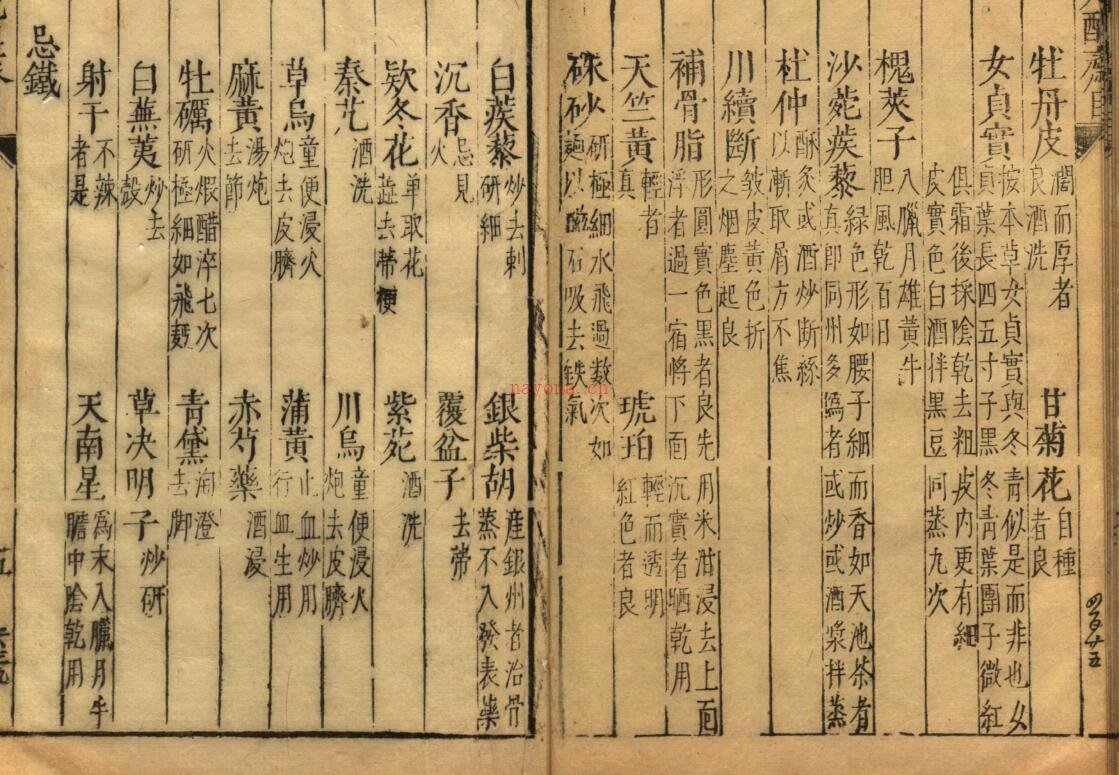 牡丹皮 濶而厚者良酒洗 甘菊花 自種者良
女貞實 按本草女貞實與冬青似是而非也女貞葉長四五寸子黑冬青葉團子微紅
俱霜後採陰乾去粗皮內更有細皮實色白酒拌黑豆同蒸九次
槐莢子 入臘月雄黃牛胆風乾百日
沙菀蒺藜 綠色形如腰子細而香如天池茶者真即同州多偽者或炒或酒漿拌蒸
杜仲 酥炙或酒炒斷絲以漸取屑方不焦
川續斷 皺皮黃色折之烟塵起良
補骨脂 形圓實色黑者良先用米泔浸去上面浮者過一宿將下面沉實者晒乾用
天竺黃 輕者真 琥珀 輕而透明紅色者良
硃砂 研極細水飛過数次如麺以磁石吸去鉄氣
白蒺藜 炒去刺研細 銀柴胡 産銀州者治骨蒸不入發表藥
沉香 忌見火 覆盆子 去蒂
欵冬花 单取花蕋去蒂梗 紫菀 酒洗
秦艽 酒洗 川烏 童便浸火炮去皮臍
草烏 童便浸火炮去皮臍 蒲黃 止血炒用行血生用
麻黃 湯炮去節 赤芍藥 酒浸
牡礪 火煅醋淬七次研極細如飛麪 青黛 淘澄去脚
白蕪荑 炒去殼 草决明子 炒研
射干 不辣者是 天南星 為末入臘月牛膽中陰乾用
忌鐵
五
四百廿五
nayona.cn